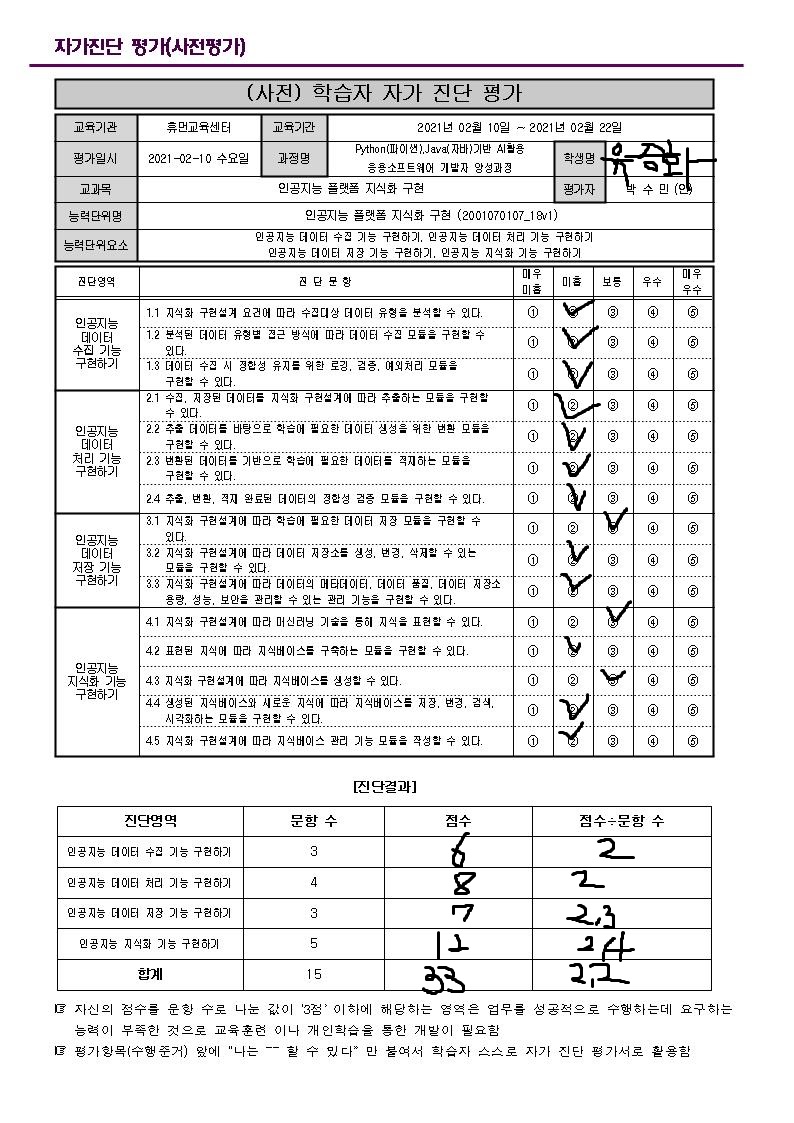 자가진단 평가(사전평가)
(사전) 학습자 자가 진단 평가
교육기관 휴먼교육센터 교육기간 2021년 02월 10일 ~ 2021년 02월 22일
평가일시 2021-02-10 수요일 과정명 Python(파이썬),Java(자바)기반 AI활용
응용소프트웨어 개발자 양성과정 학생명
교과목 인공지능 플랫폼 지식화 구현 평가자 박 수 민 (인)
능력단위명 인공지능 플랫폼 지식화 구현 (2001070107_18v1)
능력단위요소 인공지능 데이터 수집 기능 구현하기, 인공지능 데이터 처리 기능 구현하기
인공지능 데이터 저장 기능 구현하기, 인공지능 지식화 기능 구현하기
진단영역 진 단 문 항 매우 미흡 미흡 보통 우수 매우 우수
인공지능 데이터 수집 기능 구현하기
1.1 지식화 구현설계 요건에 따라 수집대상 데이터 유형을 분석할 수 있다. ① ✓ ③ ④ ⑤
1.2 분석된 데이터 유형별 접근 방식에 따라 데이터 수집 모듈을 구현할 수
있다. ① ✓ ③ ④ ⑤
1.3 데이터 수집 시 정합성 유지를 위한 로깅, 검증, 예외처리 모듈을
구현할 수 있다. ① ✓ ③ ④ ⑤
인공지능 데이터 처리 기능 구현하기
2.1 수집, 저장된 데이터를 지식화 구현설계에 따라 추출하는 모듈을 구현할
수 있다. ① ② ✓ ③ ④ ⑤
2.2 추출 데이터를 바탕으로 학습에 필요한 데이터 생성을 위한 변환 모듈을
구현할 수 있다. ① ② ✓ ③ ④ ⑤
2.3 변환된 데이터를 기반으로 학습에 필요한 데이터를 적재하는 모듈을
구현할 수 있다. ① ② ✓ ③ ④ ⑤
2.4 추출, 변환, 적재 완료된 데이터의 정합성 검증 모듈을 구현할 수 있다. ① ② ✓ ③ ④ ⑤
인공지능 데이터 저장 기능 구현하기
3.1 지식화 구현설계에 따라 학습에 필요한 데이터 저장 모듈을 구현할 수
있다. ① ② ✓ ④ ⑤
3.2 지식화 구현설계에 따라 데이터 저장소를 생성, 변경, 삭제할 수 있는
모듈을 구현할 수 있다. ① ② ✓ ③ ④ ⑤
3.3 지식화 구현설계에 따라 데이터의 메타데이터, 데이터 품질, 데이터 저장소
용량, 성능, 보안을 관리할 수 있는 관리 기능을 구현할 수 있다. ① ✓ ③ ④ ⑤
인공지능 지식화 기능 구현하기
4.1 지식화 구현설계에 따라 머신러닝 기술을 통해 지식을 표현할 수 있다. ① ② ✓ ④ ⑤
4.2 표현된 지식에 따라 지식베이스를 구축하는 모듈을 구현할 수 있다. ① ② ✓ ③ ④ ⑤
4.3 지식화 구현설계에 따라 지식베이스를 생성할 수 있다. ① ② ✓ ④ ⑤
4.4 생성된 지식베이스와 새로운 지식에 따라 지식베이스를 저장, 변경, 검색,
시각화하는 모듈을 구현할 수 있다. ① ② ✓ ③ ④ ⑤
4.5 지식화 구현설계에 따라 지식베이스 관리 기능 모듈을 작성할 수 있다. ① ② ✓ ③ ④ ⑤
[진단결과]
진단영역 문항 수 점수 점수÷문항 수
인공지능 데이터 수집 기능 구현하기 3 6 2
인공지능 데이터 처리 기능 구현하기 4 8 2
인공지능 데이터 저장 기능 구현하기 3 7 2.3
인공지능 지식화 기능 구현하기 5 12 2.4
합계 15 33 2.2
☞ 자신의 점수를 문항 수로 나눈 값이 '3점' 이하에 해당하는 영역은 업무를 성공적으로 수행하는데 요구하는
능력이 부족한 것으로 교육훈련 이나 개인학습을 통한 개발이 필요함
☞ 평가항목(수행준거) 앞에 "나는 ―― 할 수 있다" 만 붙여서 학습자 스스로 자가 진단 평가서로 활용함